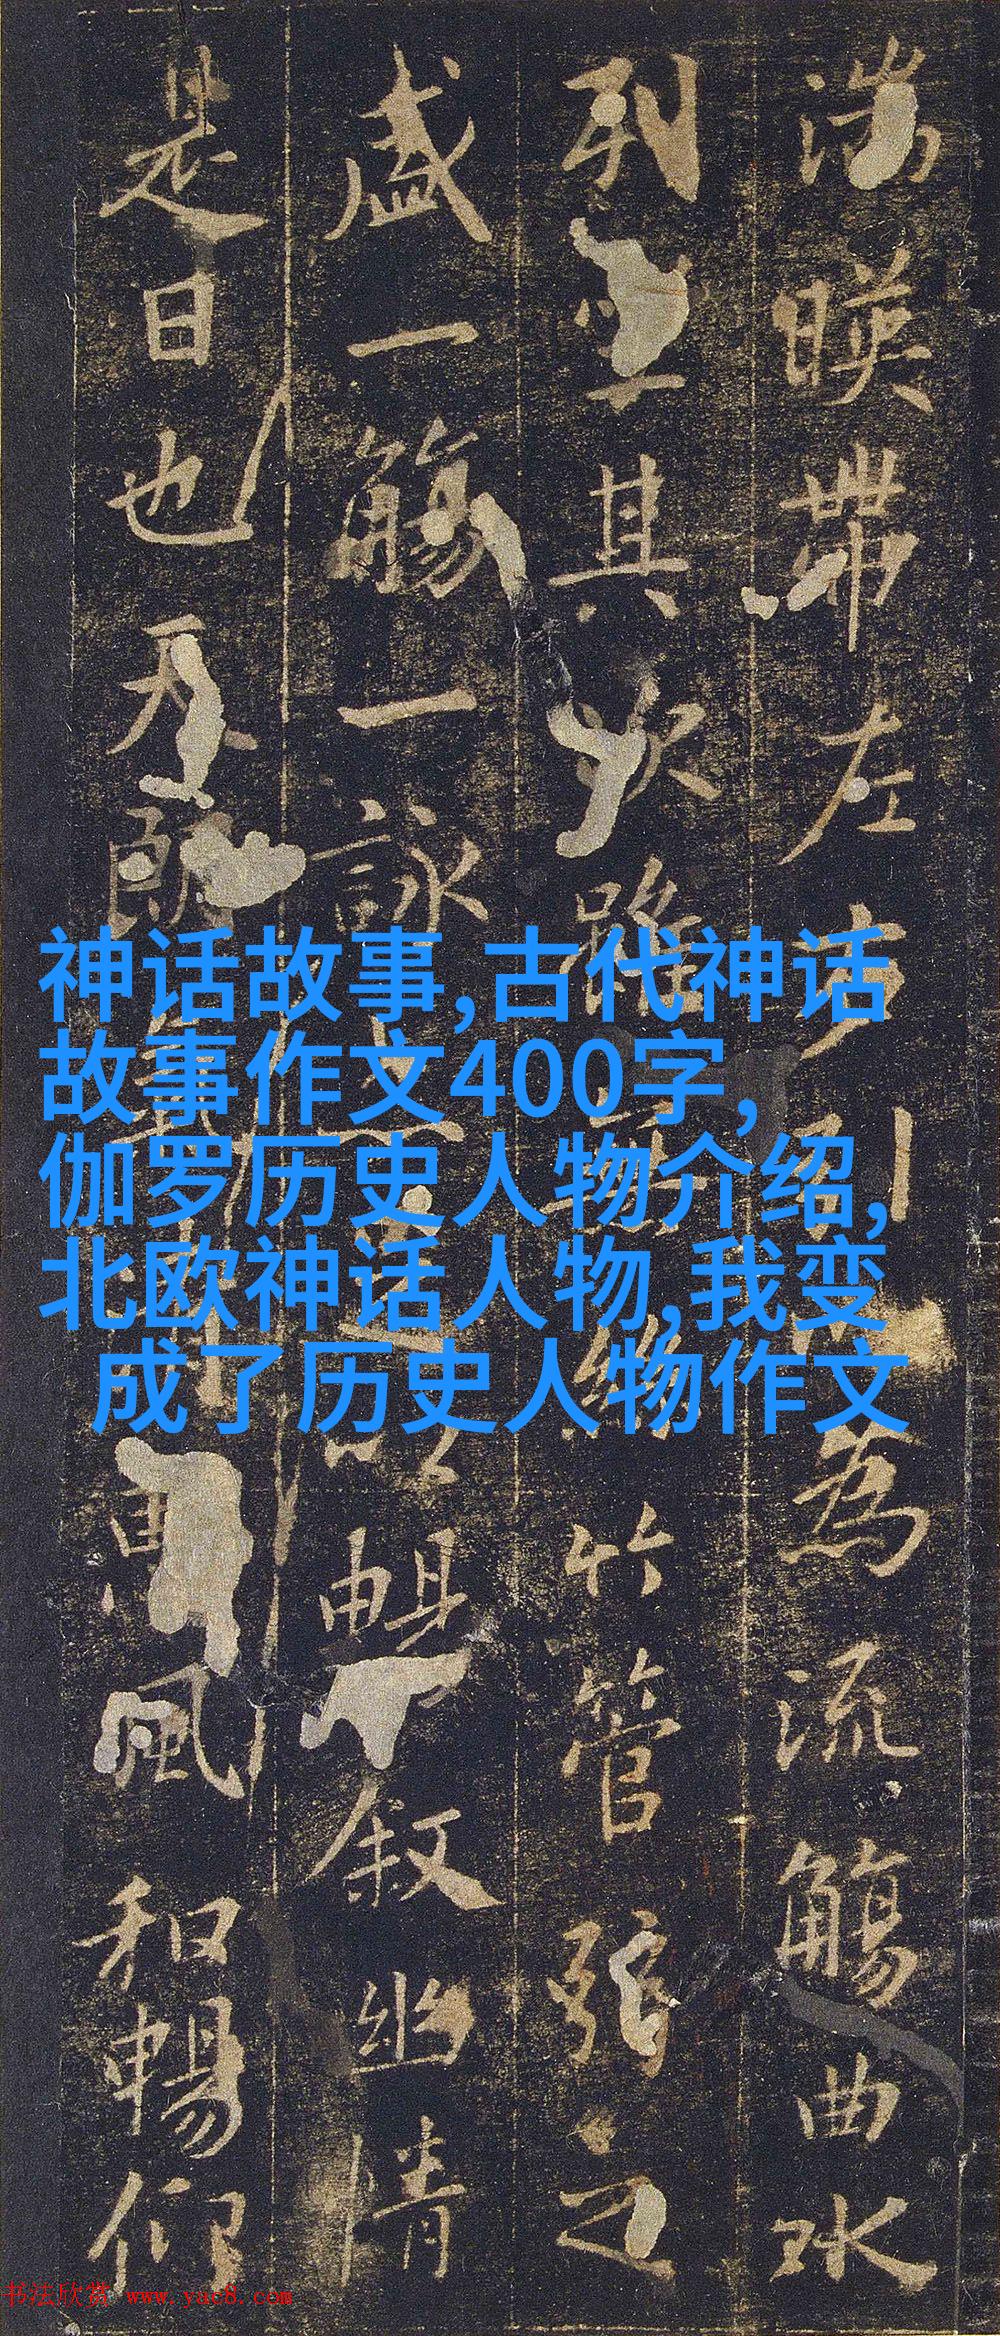 湍暎帶左右引為流觴曲水
列坐其次雖無絲竹管弦之
盛一觴一詠以暢敘幽情
是日也天朗氣清惠風和暢仰
神话故事,古代神话
故事作文400字,
伽罗历史人物介绍,
北欧神话人物,我变
成了历史人物作文
书法欣赏 www.yac8.com